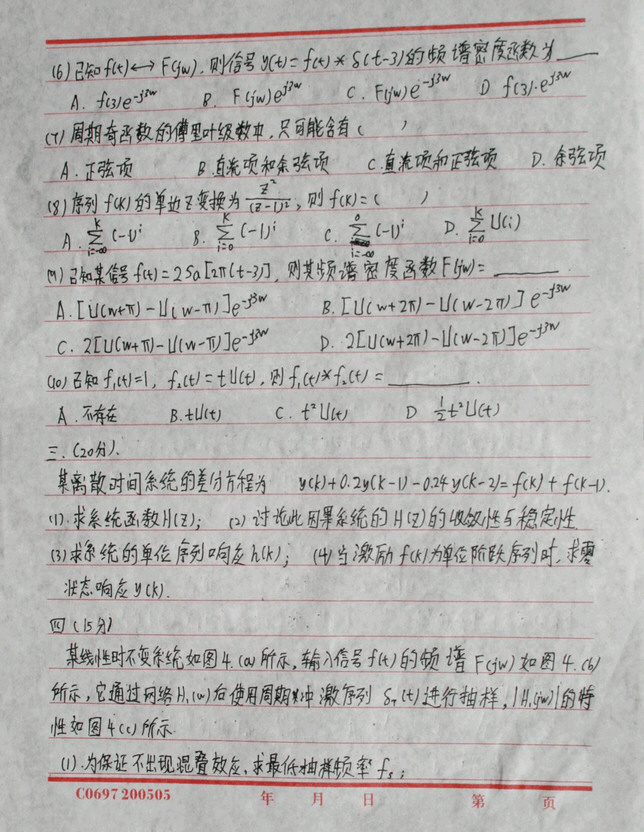 (6) 已知f(t)↔F(jw), 则信号y(t)=f(t)*δ(t-3)的频谱密度函数为____
A. f(3)e^{-j3w} B. F(jw)e^{j3w} C. F(jw)e^{-j3w} D f(3)·e^{j3w}
(7) 周期奇函数的傅里叶级数中,只可能含有( )
A. 正弦项 B.直流项和余弦项 C.直流项和正弦项 D. 余弦项
(8) 序列f(k)的单边Z变换为 z²/(z-1)², 则f(k)=( )
A. ∑_{i=-∞}^{k} (-1)^i B. ∑_{i=0}^{k} (-1)^i C. ∑_{i=-∞}^{0} (-1)^i D. ∑_{i=0}^{k} U(i)
(9) 已知某信号f(t)=2Sa[2π(t-3)], 则其频谱密度函数F(jw)=______
A. [U(w+π)-U(w-π)]e^{-j3w} B. [U(w+2π)-U(w-2π)]e^{-j3w}
C. 2[U(w+π)-U(w-π)]e^{-j3w} D. 2[U(w+2π)-U(w-2π)]e^{-j3w}
(10) 已知f₁(t)=1, f₂(t)=tU(t), 则f₁(t)*f₂(t)=________.
A. 不存在 B. tU(t) C. t²U(t) D ½t²U(t)
三.(20分).
某离散时间系统的差分方程为 y(k)+0.2y(k-1)-0.24y(k-2)=f(k)+f(k-1).
(1).求系统函数H(z); (2)讨论此因果系统的H(z)的收敛性与稳定性.
(3)求系统的单位序列响应h(k); (4)当激励f(k)为单位阶跃序列时,求零
状态响应y(k).
四(15分)
某线性时不变系统如图4.(a)所示,输入信号f(t)的频谱F(jw)如图4.(b)
所示,它通过网络H₁(w)后使用周期冲激序列δ_T(t)进行抽样,|H₁(jw)|的特
性如图4(c)所示.
(1).为保证不出现混叠效应,求最低抽样频率fs;
C0697 200505 年 月 日 第 页